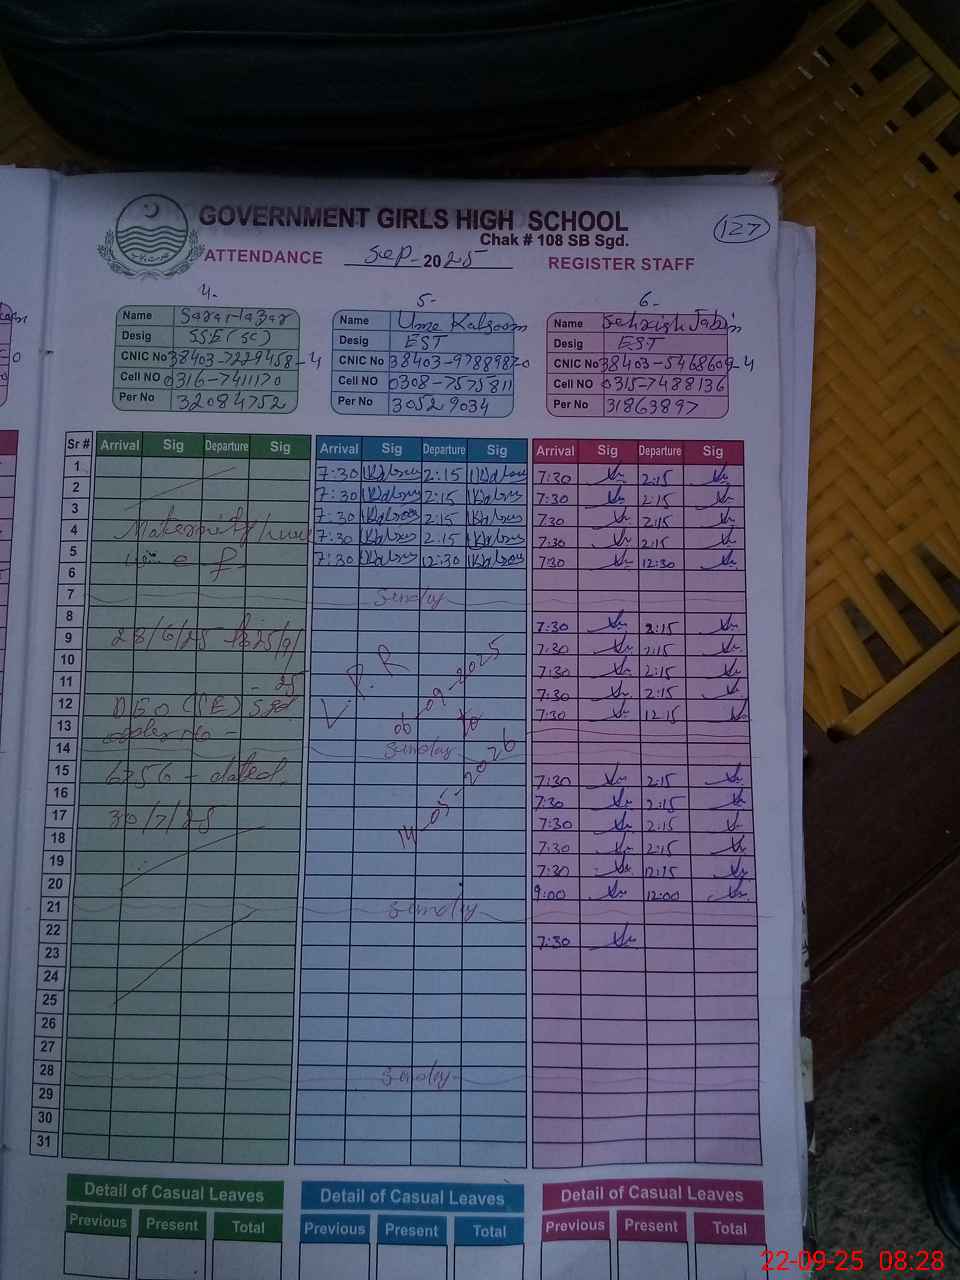 GOVERNMENT GIRLS HIGH SCHOOL
Chak # 108 SB Sgd.
127
ATTENDANCE Sep- 2025 REGISTER STAFF
4-
5-
6-
Name
Desig SSE (SC)
CNIC No 38403-7229458-4
Cell NO 0316-7411170
Per No 32084752
Name Ume Kalsoom
Desig EST
CNIC No 38403-9788987-0
Cell NO 0308-7575811
Per No 30529034
Name Sehrish Jabin
Desig EST
CNIC No 38403-5468609-4
Cell NO 0315-7488136
Per No 31863897
Sr # Arrival Sig Departure Sig Arrival Sig Departure Sig Arrival Sig Departure Sig
1 7:30 2:15 7:30 2:15
2 7:30 2:15 7:30 2:15
3 7:30 2:15 7:30 2:15
4 Maternity 7:30 2:15 7:30 2:15
5 w.e.f 7:30 12:30 7:30 12:30
6
7 Sunday
8 7:30 2:15
9 28/6/25 to 25/9/ 7:30 2:15
10 25 L.P.R 06-09-2025 7:30 2:15
11 7:30 2:15
12 DEO (SE) Sgd to 7:30 12:15
13 order no -
14 Sunday
15 6256 - dated 14-05-2026 7:30 2:15
16 7:30 2:15
17 30/7/25 7:30 2:15
18 7:30 2:15
19 7:30 12:15
20 9:00 12:00
21 Sunday
22 7:30
23
24
25
26
27
28 Sunday
29
30
31
Detail of Casual Leaves Detail of Casual Leaves Detail of Casual Leaves
Previous Present Total Previous Present Total Previous Present Total
22-09-25 08:28